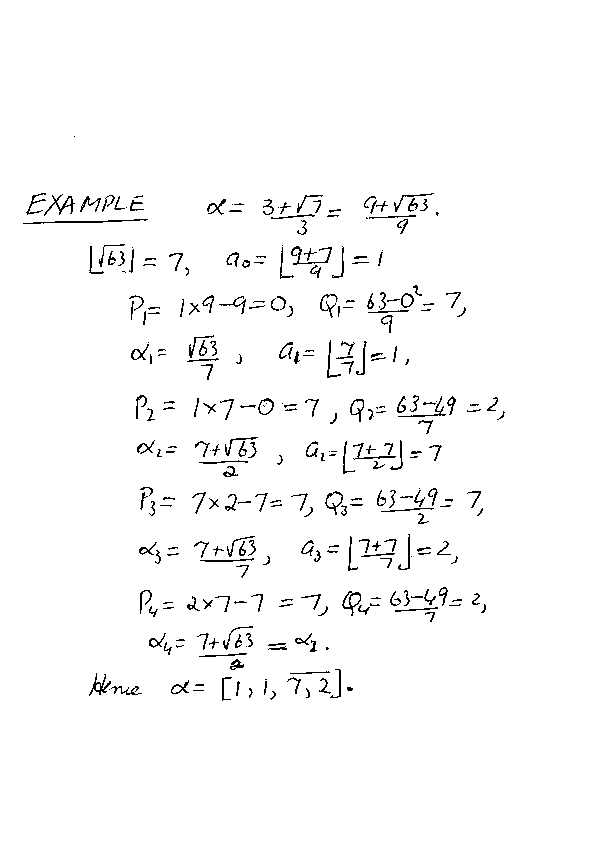 EXAMPLE α = (3+√7)/3 = (9+√63)/9.
⌊√63⌋ = 7, a₀ = ⌊(9+7)/9⌋ = 1
P₁ = 1×9−9=0, Q₁ = (63−0²)/9 = 7,
α₁ = √63/7, a₁ = ⌊7/7⌋ = 1,
P₂ = 1×7−0 = 7, Q₂ = (63−49)/7 = 2,
α₂ = (7+√63)/2, a₂ = ⌊(7+7)/2⌋ = 7
P₃ = 7×2−7 = 7, Q₃ = (63−49)/2 = 7,
α₃ = (7+√63)/7, a₃ = ⌊(7+7)/7⌋ = 2,
P₄ = 2×7−7 = 7, Q₄ = (63−49)/7 = 2,
α₄ = (7+√63)/2 = α₂.
Hence α = [1, 1, 7̅,̅ ̅2̅].